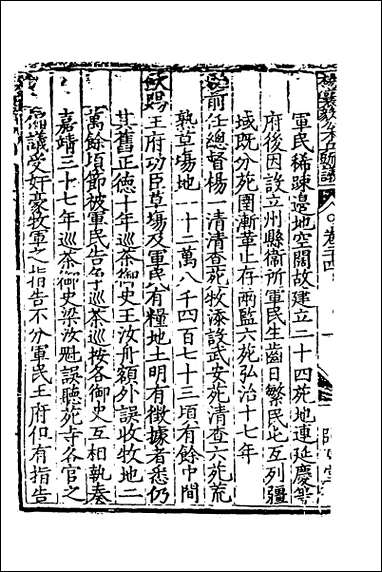 軍民稀疎邊地空閒故建立二十四苑地連延慶等
府後因設立州縣衛所軍民生齒日繁民屯互列疆
域既分苑圉漸革止存兩監六苑弘治十七年
前任總督楊一清清查苑牧添設武安苑清查六苑荒
熟草塲地一十二萬八千四百七十三頃有餘中間
欽賜王府功臣草塲及軍民有糧地土明有徵據者悉仍
其舊正德十年巡茶御史王汝舟額外誤收牧地二
萬餘頃節被軍民告爭巡茶巡按各御史互相執奏
嘉靖三十七年巡茶御史梁汝魁誤聽苑寺各官之
議受奸豪牧軍之指告不分軍民王府但有指告